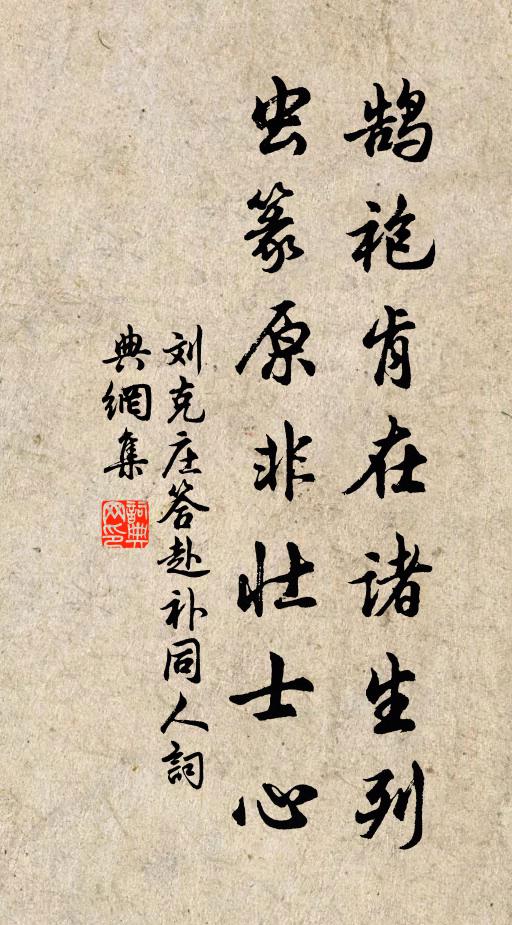 鹄袍肯在诸生列
虫篆原非壮士心
刘克庄答赴补同人詞
典網集
詞典网印